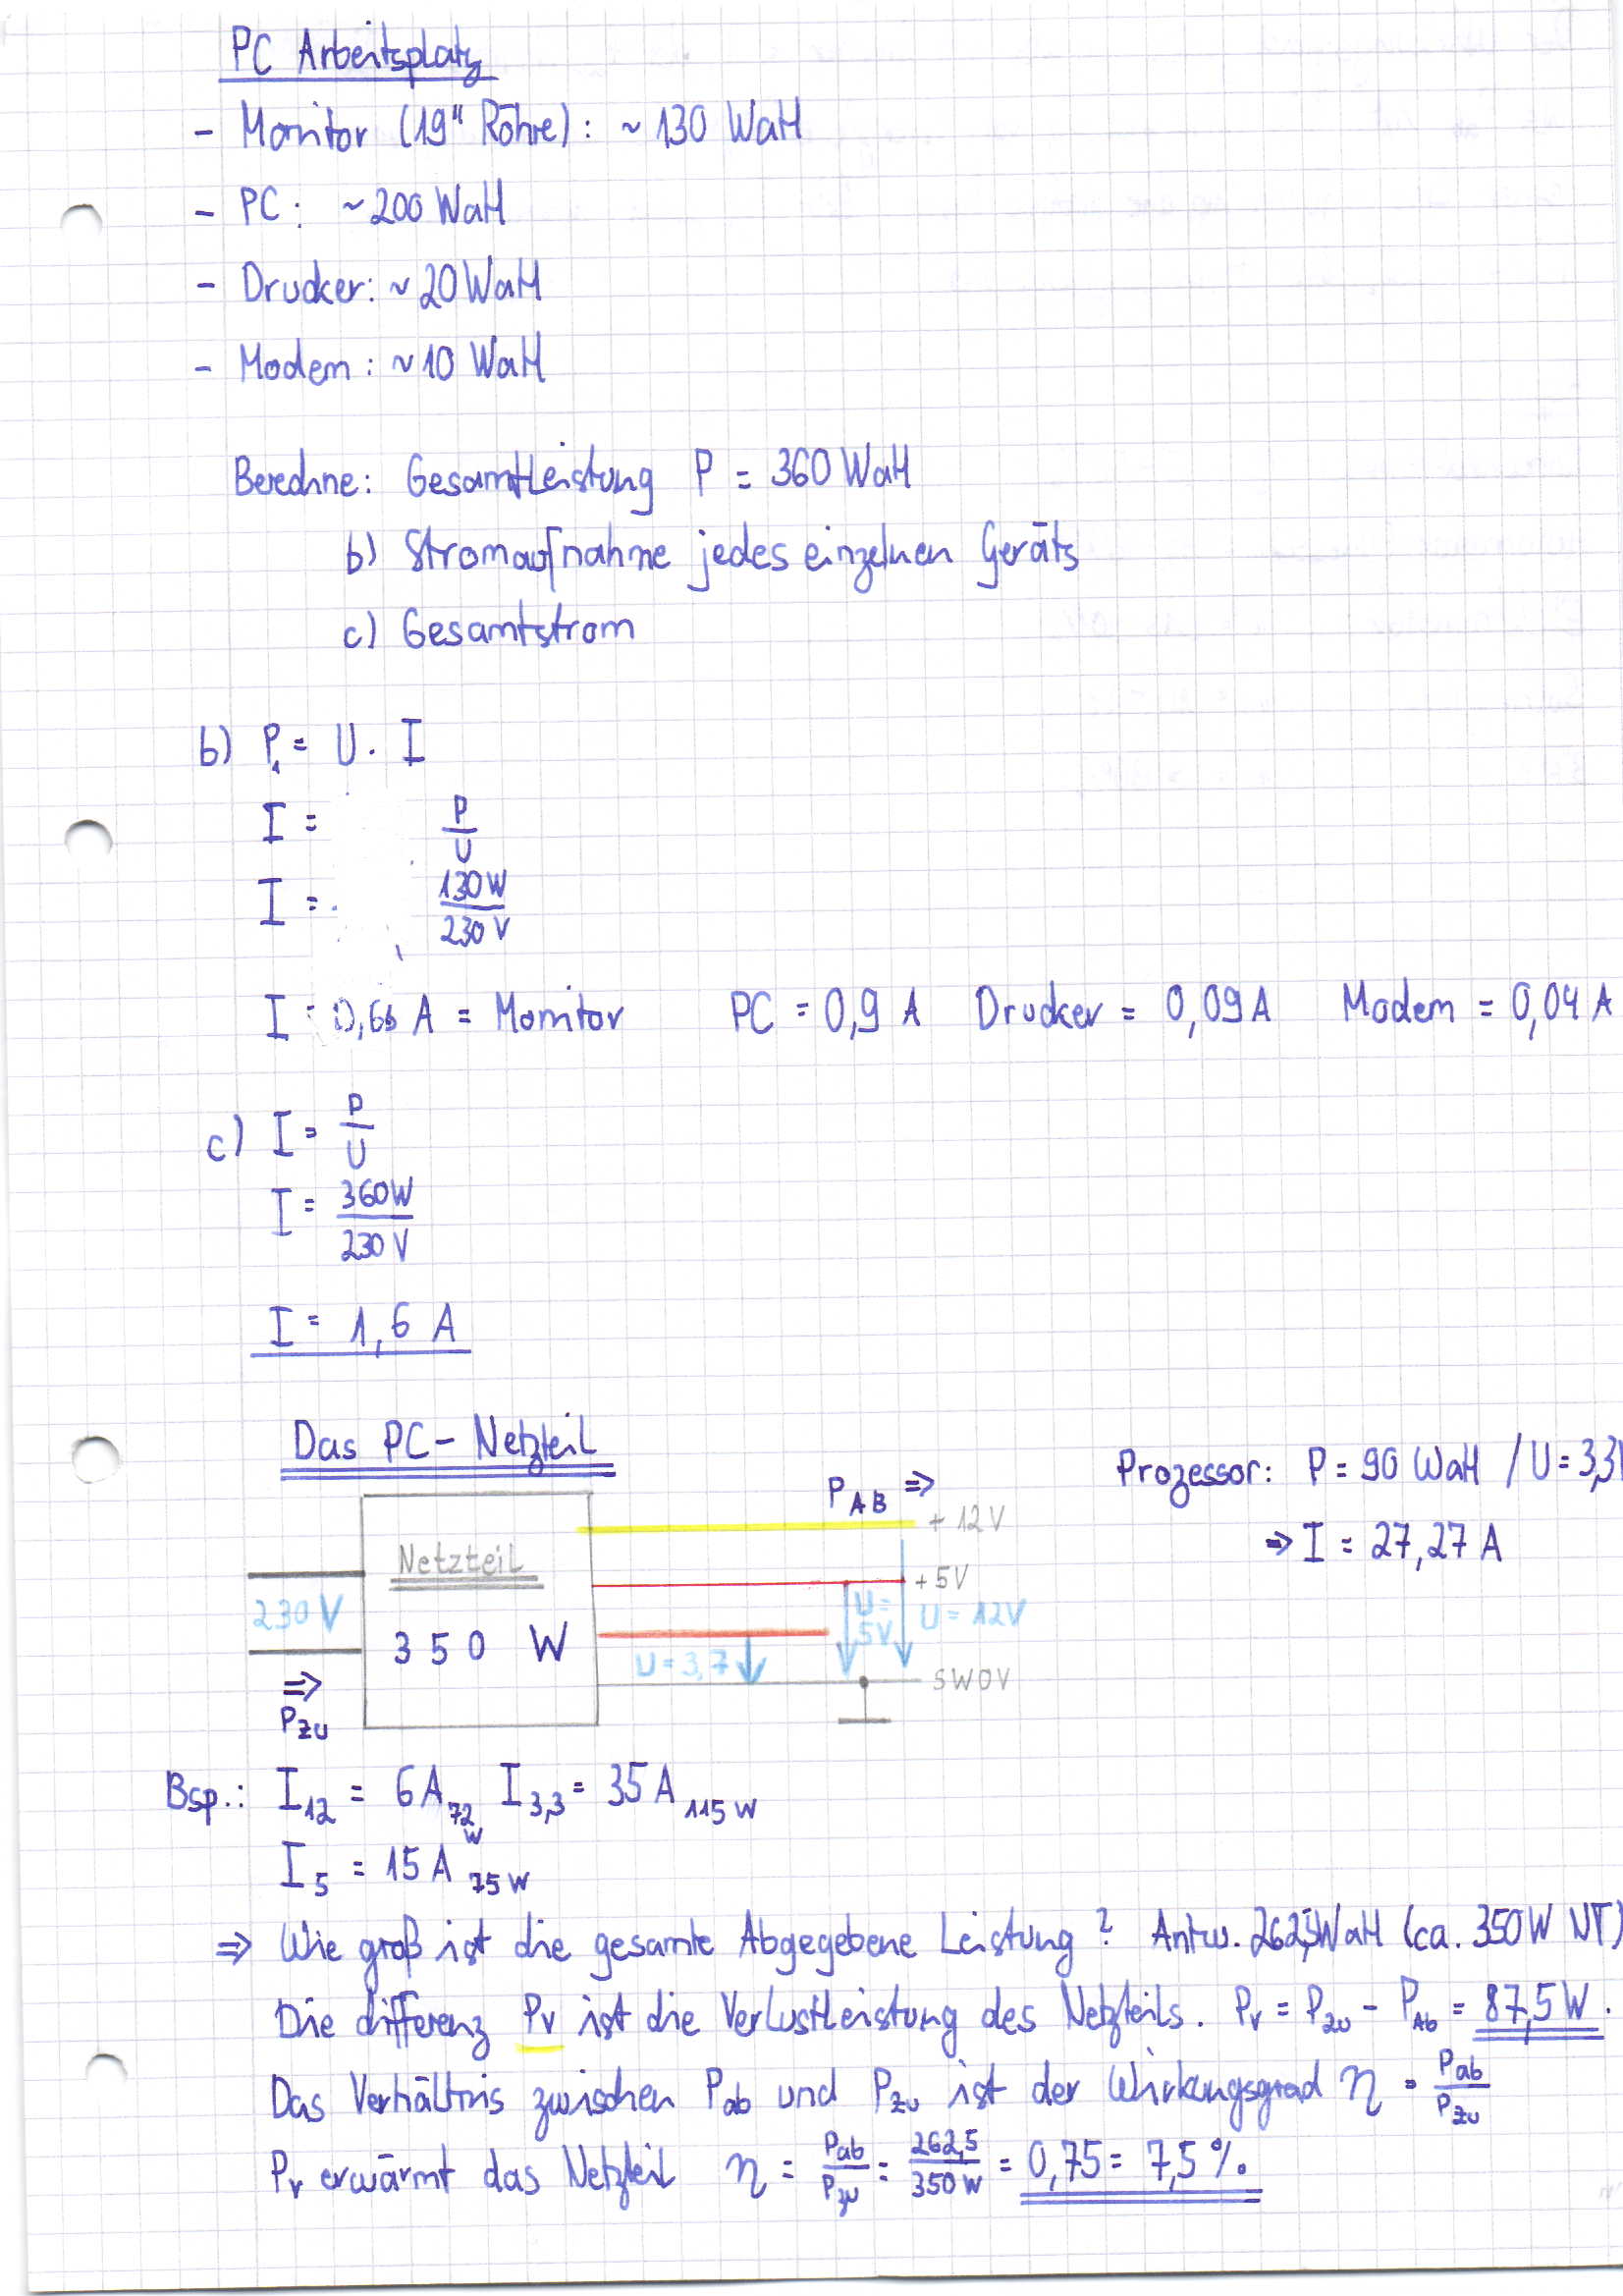 PC Arbeitsplatz
- Monitor (19" Röhre): ~ 130 Watt
- PC: ~ 200 Watt
- Drucker: ~ 20 Watt
- Modem: ~ 10 Watt
Berechne: Gesamtleistung P = 360 Watt
b) Stromaufnahme jedes einzelnen Geräts
c) Gesamtstrom
b) P₁ = U · I
I = P/U
I = 130W/230V
I = 0,66 A = Monitor PC = 0,9 A Drucker = 0,09 A Modem = 0,04 A
c) I = P/U
I = 360W/230V
I = 1,6 A
Das PC-Netzteil
Prozessor: P = 90 Watt / U = 3,3V
⇒ I = 27,27 A
P AB ⇒
+ 12V
Netzteil
+ 5V
230V
U = 5V
U = 12V
350 W
U = 3,7
SW 0V
⇒
P ZU
Bsp.: I₁₂ = 6A 72W I₃,₃ = 35A 115W
I₅ = 15A 75W
⇒ Wie groß ist die gesamte Abgegebene Leistung? Antw. 262,5Watt (ca. 350W NT)
Die differenz Pv ist die Verlustleistung des Netzteils. Pv = Pzu - PAb = 87,5W.
Das Verhältnis zwischen Pab und Pzu ist der Wirkungsgrad η = Pab/Pzu
Pv erwärmt das Netzteil η = Pab/Pzu = 262,5/350W = 0,75 = 7,5%.